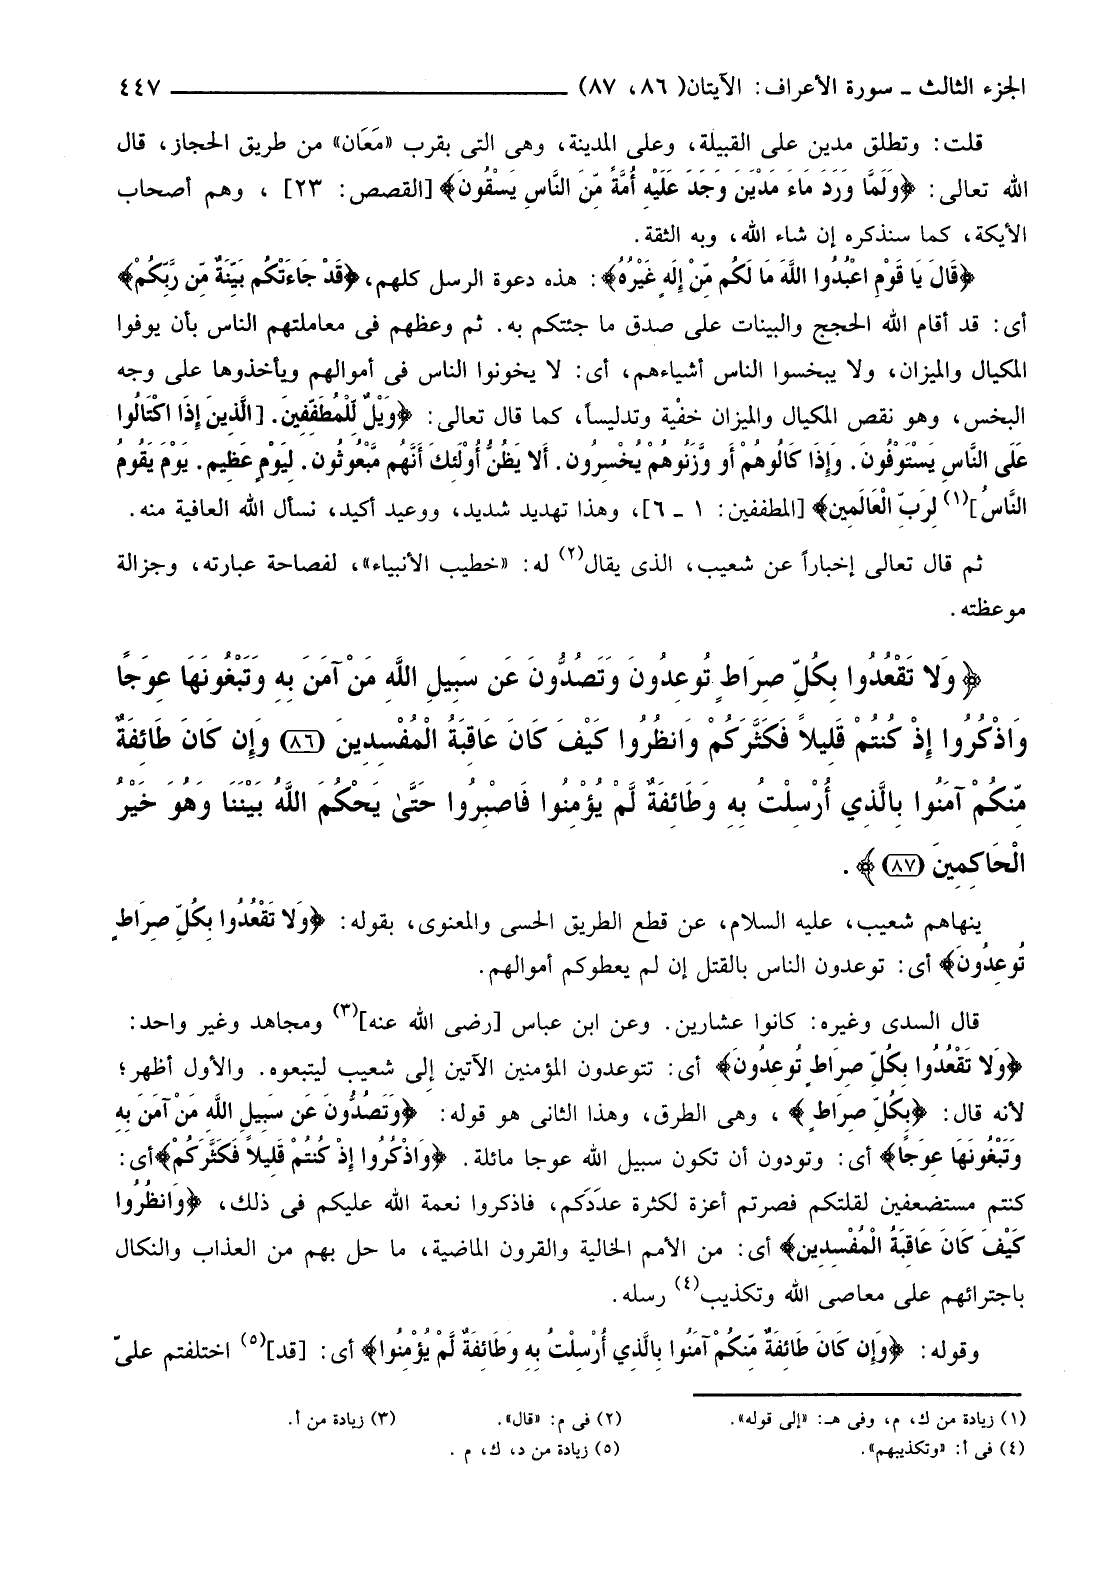 الجزء الثالث ـ سورة الأعراف: الآيتان( ٨٦، ٨٧) ٤٤٧
قلت: وتطلق مدين على القبيلة، وعلى المدينة، وهى التى بقرب «مَعَان» من طريق الحجاز، قال
الله تعالى: ﴿وَلَمَّا وَرَدَ مَاءَ مَدْيَنَ وَجَدَ عَلَيْهِ أُمَّةً مِّنَ النَّاسِ يَسْقُونَ﴾ [القصص: ٢٣] ، وهم أصحاب
الأيكة، كما سنذكره إن شاء الله، وبه الثقة.
﴿قَالَ يَا قَوْمِ اعْبُدُوا اللَّهَ مَا لَكُم مِّنْ إِلَهٍ غَيْرُهُ﴾: هذه دعوة الرسل كلهم، ﴿قَدْ جَاءَتْكُم بَيِّنَةٌ مِّن رَّبِّكُمْ﴾
أى: قد أقام الله الحجج والبينات على صدق ما جئتكم به. ثم وعظهم فى معاملتهم الناس بأن يوفوا
المكيال والميزان، ولا يبخسوا الناس أشياءهم، أى: لا يخونوا الناس فى أموالهم ويأخذوها على وجه
البخس، وهو نقص المكيال والميزان خفْية وتدليساً، كما قال تعالى: ﴿وَيْلٌ لِّلْمُطَفِّفِينَ. [الَّذِينَ إِذَا اكْتَالُوا
عَلَى النَّاسِ يَسْتَوْفُونَ. وَإِذَا كَالُوهُمْ أَو وَّزَنُوهُمْ يُخْسِرُونَ. أَلا يَظُنُّ أُوْلَئِكَ أَنَّهُم مَّبْعُوثُون. لِيَوْمٍ عَظِيمٍ. يَوْمَ يَقُومُ
النَّاسُ](١) لِرَبِّ الْعَالَمِين﴾ [المطففين: ١ ـ ٦]، وهذا تهديد شديد، ووعيد أكيد، نسأل الله العافية منه.
ثم قال تعالى إخباراً عن شعيب، الذى يقال(٢) له: «خطيب الأنبياء»، لفصاحة عبارته، وجزالة
موعظته.
﴿وَلا تَقْعُدُوا بِكُلِّ صِرَاطٍ تُوعِدُونَ وَتَصُدُّونَ عَن سَبِيلِ اللَّهِ مَنْ آمَنَ بِهِ وَتَبْغُونَهَا عِوَجًا
وَاذْكُرُوا إِذْ كُنتُمْ قَلِيلاً فَكَثَّرَكُمْ وَانظُرُوا كَيْفَ كَانَ عَاقِبَةُ الْمُفْسِدِينَ (٨٦) وَإِن كَانَ طَائِفَةٌ
مِّنكُمْ آمَنُوا بِالَّذِي أُرْسِلْتُ بِهِ وَطَائِفَةٌ لَّمْ يُؤْمِنُوا فَاصْبِرُوا حَتَّىٰ يَحْكُمَ اللَّهُ بَيْنَنَا وَهُوَ خَيْرُ
الْحَاكِمِينَ (٨٧) ﴾ .
ينهاهم شعيب، عليه السلام، عن قطع الطريق الحسى والمعنوى، بقوله: ﴿وَلا تَقْعُدُوا بِكُلِّ صِرَاطٍ
تُوعِدُونَ﴾ أى: توعدون الناس بالقتل إن لم يعطوكم أموالهم.
قال السدى وغيره: كانوا عشارين. وعن ابن عباس [رضى الله عنه](٣) ومجاهد وغير واحد:
﴿وَلا تَقْعُدُوا بِكُلِّ صِرَاطٍ تُوعِدُونَ﴾ أى: تتوعدون المؤمنين الآتين إلى شعيب ليتبعوه. والأول أظهر؛
لأنه قال: ﴿بِكُلِّ صِرَاطٍ ﴾ ، وهى الطرق، وهذا الثانى هو قوله: ﴿وَتَصُدُّونَ عَن سَبِيلِ اللَّهِ مَنْ آمَنَ بِهِ
وَتَبْغُونَهَا عِوَجًا﴾ أى: وتودون أن تكون سبيل الله عوجا مائلة. ﴿وَاذْكُرُوا إِذْ كُنتُمْ قَلِيلاً فَكَثَّرَكُمْ﴾أى:
كنتم مستضعفين لقلتكم فصرتم أعزة لكثرة عدَدَكم، فاذكروا نعمة الله عليكم فى ذلك، ﴿وَانظُرُوا
كَيْفَ كَانَ عَاقِبَةُ الْمُفْسِدِين﴾ أى: من الأمم الخالية والقرون الماضية، ما حل بهم من العذاب والنكال
باجترائهم على معاصى الله وتكذيب(٤) رسله.
وقوله: ﴿وَإِن كَانَ طَائِفَةٌ مِّنكُمْ آمَنُوا بِالَّذِي أُرْسِلْتُ بِهِ وَطَائِفَةٌ لَّمْ يُؤْمِنُوا﴾ أى: [قد](٥) اختلفتم علىّ
(١) زيادة من ك، م، وفى هـ: «إلى قوله». (٢) فى م: «قال». (٣) زيادة من أ.
(٤) فى أ: «وتكذيبهم». (٥) زيادة من د، ك، م .